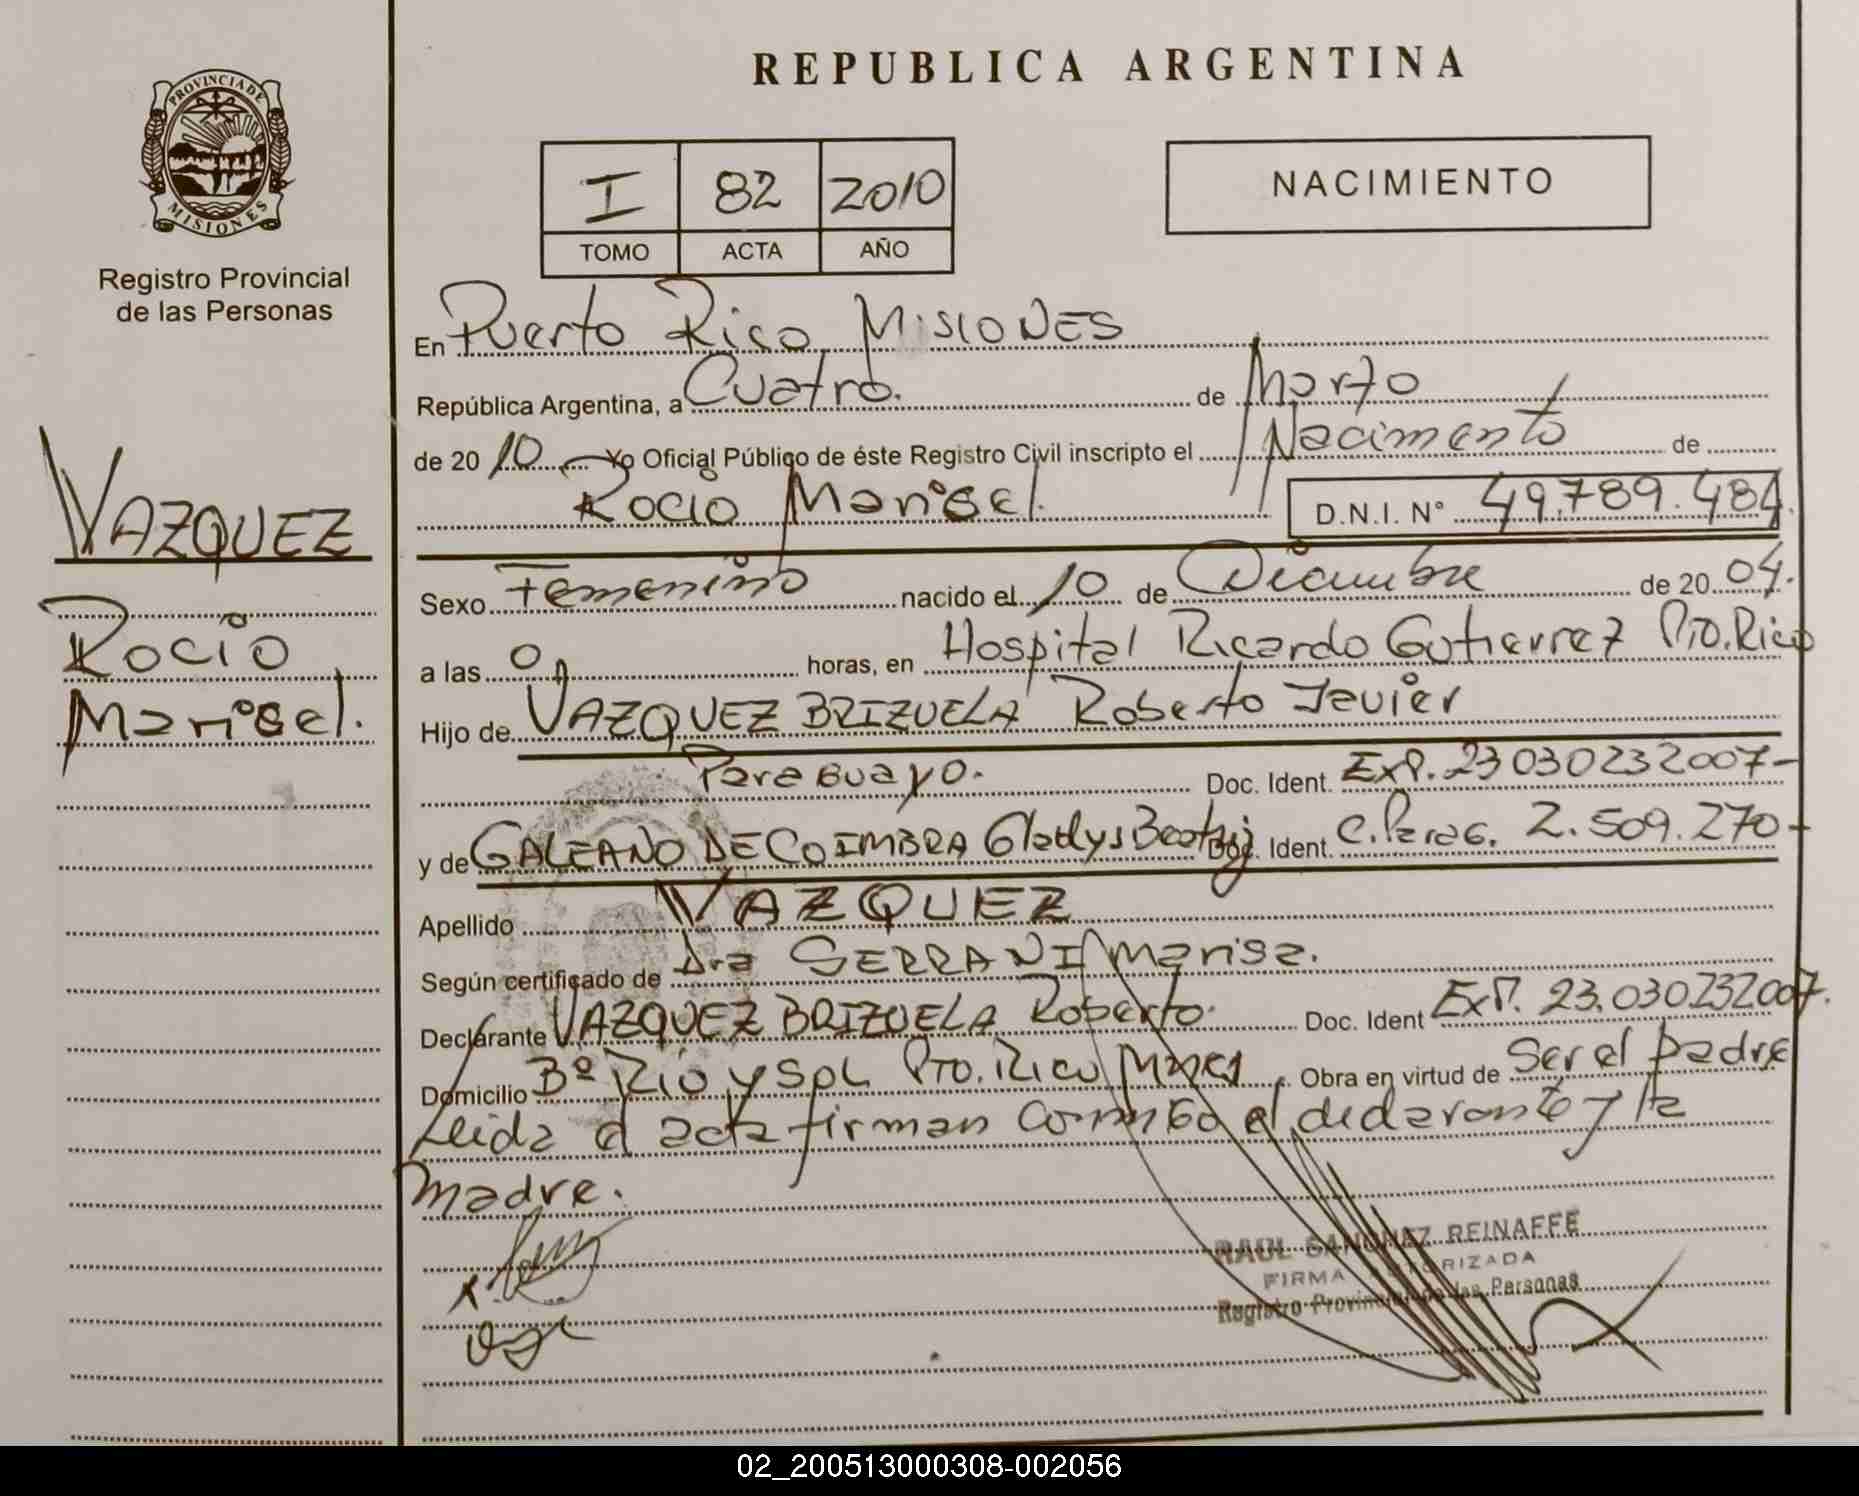 PROVINCIA DE
MISIONES
Registro Provincial
de las Personas
VAZQUEZ
Rocio
Marisel.
REPUBLICA ARGENTINA
I 82 2010
TOMO ACTA AÑO
NACIMIENTO
En Puerto Rico, MISIONES
República Argentina, a Cuatro. de Marzo
de 2010 Yo Oficial Público de éste Registro Civil inscripto el Nacimento de
Rocio Marisel. D.N.I. N° 49.789.484.
Sexo Femenino nacido el 10 de Diciembre de 2004.
a las 0 horas, en Hospital Ricardo Gutierrez Pto. Rico
Hijo de VAZQUEZ BRIZUELA Roberto Javier
Paraguayo. Doc. Ident. Exp. 23030232007-
y de GALEANO DE COIMBRA Gladys Beatriz Doc. Ident. C. Parag. 2.509.270-
Apellido VAZQUEZ
Según certificado de Dra SERRANI Marisa.
Declarante VAZQUEZ BRIZUELA Roberto. Doc. Ident Exp. 23.030232007.
Domicilio B° Rio y SOL Pto. Rico Mnes Obra en virtud de Ser el padre
Leida el acta firman conmigo el declarante y la
Madre.
RAUL SANCHEZ REINAFFE
FIRMA AUTORIZADA
Registro Provincial de las Personas
02_200513000308-002056